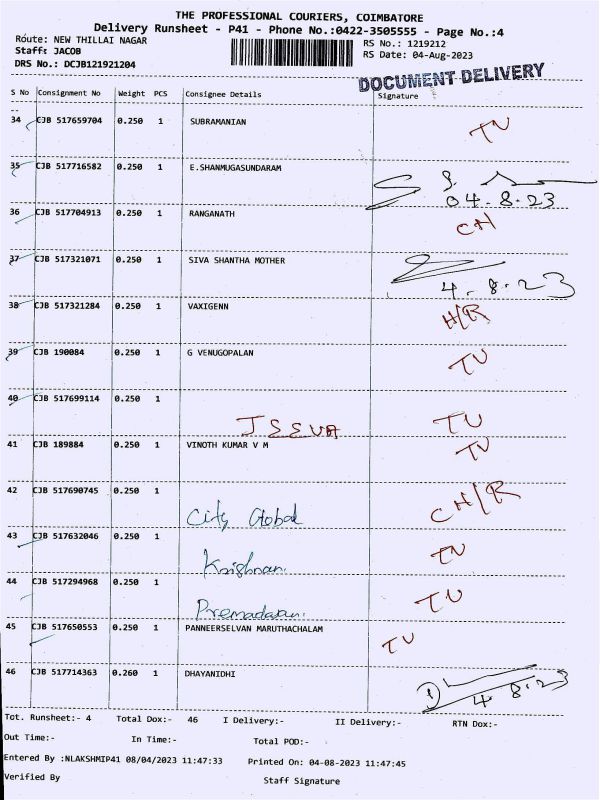 THE PROFESSIONAL COURIERS, COIMBATORE
Delivery Runsheet - P41 - Phone No.:0422-3505555 - Page No.:4
Route: NEW THILLAI NAGAR RS No.: 1219212
Staff: JACOB RS Date: 04-Aug-2023
DRS No.: DCJB121921204
DOCUMENT DELIVERY
S No Consignment No Weight PCS Consignee Details Signature
34 CJB 517659704 0.250 1 SUBRAMANIAN TU
35 CJB 517716582 0.250 1 E.SHANMUGASUNDARAM
04.8.23
36 CJB 517704913 0.250 1 RANGANATH CH
37 CJB 517321071 0.250 1 SIVA SHANTHA MOTHER
4.8.23
38 CJB 517321284 0.250 1 VAXIGENN H/R
39 CJB 190084 0.250 1 G VENUGOPALAN TU
40 CJB 517699114 0.250 1
JEEVA TU
41 CJB 189884 0.250 1 VINOTH KUMAR V M TU
42 CJB 517690745 0.250 1
City Global CH/R
43 CJB 517632046 0.250 1
Krishnan. TU
44 CJB 517294968 0.250 1
Premadasan. TU
45 CJB 517650553 0.250 1 PANNEERSELVAN MARUTHACHALAM TU
46 CJB 517714363 0.260 1 DHAYANIDHI
4.8.23
Tot. Runsheet:- 4 Total Dox:- 46 I Delivery:- II Delivery:- RTN Dox:-
Out Time:- In Time:- Total POD:-
Entered By :NLAKSHMIP41 08/04/2023 11:47:33 Printed On: 04-08-2023 11:47:45
Verified By Staff Signature